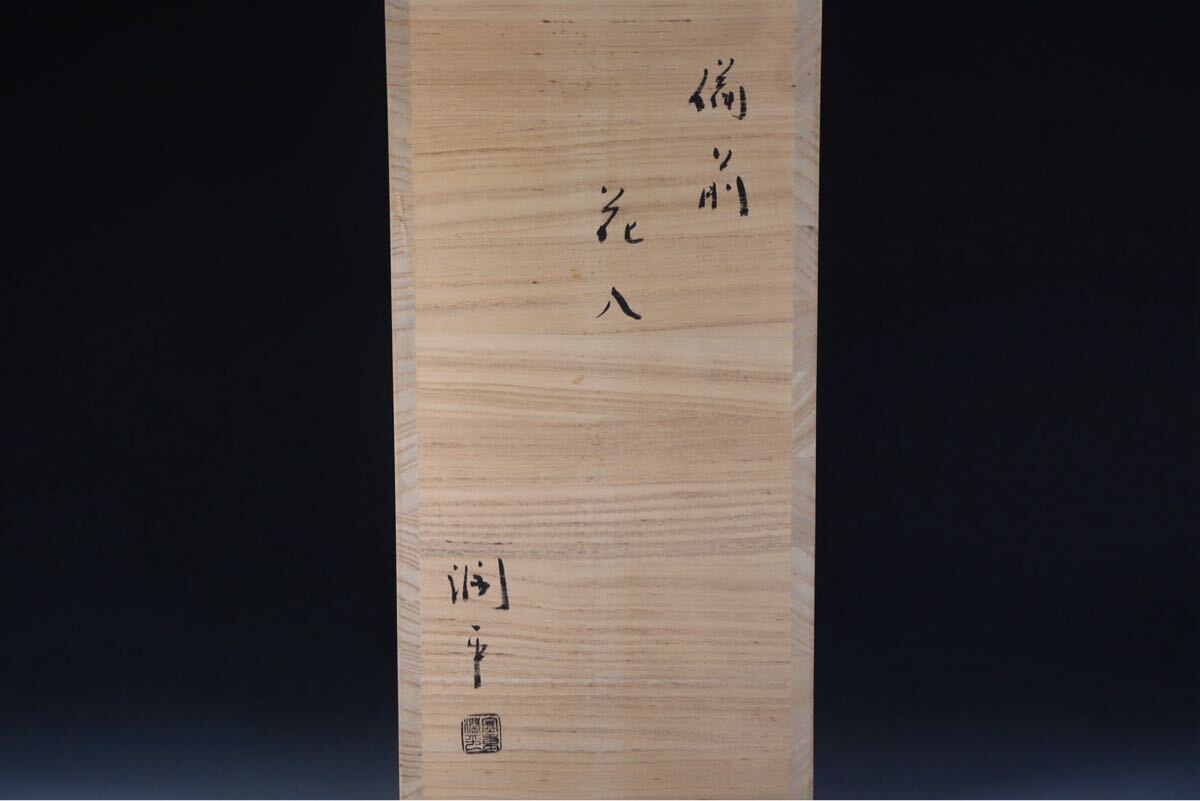 備前
花入
潤平